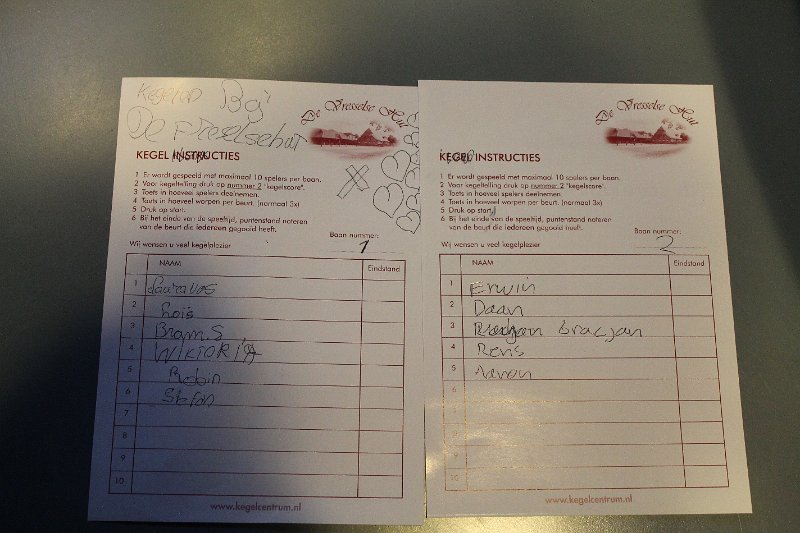 Kegelen Bij
De Freelsehut
De Vresselse Hut
KEGEL INSTRUCTIES
1 Er wordt gespeeld met maximaal 10 spelers per baan.
2 Voor kegeltelling druk op nummer 2 "kegelscore".
3 Toets in hoeveel spelers deelnemen.
4 Touts in hoeveel worpen per beurt. (normaal 3x)
5 Druk op start.
6 Bij het einde van de speeltijd, puntenstand noteren
van de beurt die iedereen gegooid heeft.
Baan nummer:
1
Wij wensen u veel kegelplezier
NAAM Eindstand
1 Laura Vos
2 Loïs
3 Bram.S
4 WIKTORIA
5 Robin
6 Stefan
7
8
9
10
www.kegelcentrum.nl
De Vresselse Hut
KEGEL INSTRUCTIES
1 Er wordt gespeeld met maximaal 10 spelers per baan.
2 Voor kegeltelling druk op nummer 2 "kegelscore".
3 Toets in hoeveel spelers deelnemen.
4 Touts in hoeveel worpen per beurt. (normaal 3x)
5 Druk op start.
6 Bij het einde van de speeltijd, puntenstand noteren
van de beurt die iedereen gegooid heeft.
Baan nummer:
2
Wij wensen u veel kegelplezier
NAAM Eindstand
1 Erwin
2 Daan
3 bracjan
4 Rens
5 Aaron
6
7
8
9
10
www.kegelcentrum.nl